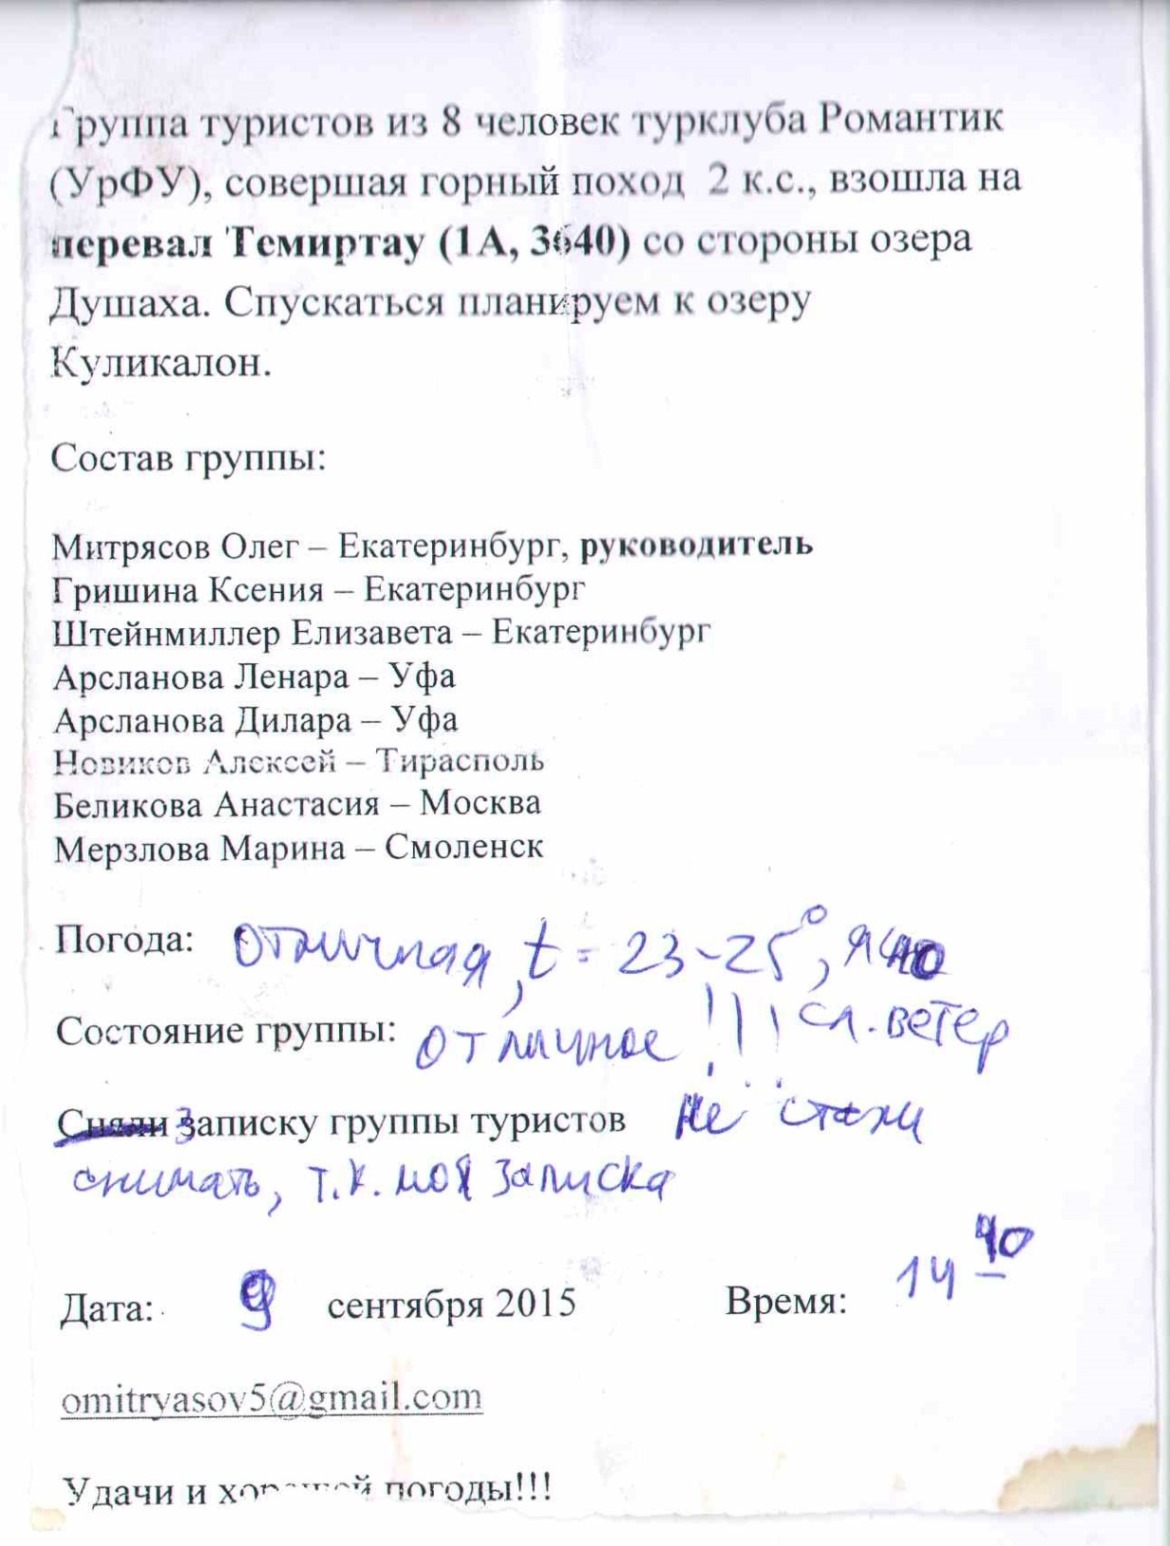 Группа туристов из 8 человек турклуба Романтик
(УрФУ), совершая горный поход 2 к.с., взошла на
перевал Темиртау (1А, 3640) со стороны озера
Душаха. Спускаться планируем к озеру
Куликалон.
Состав группы:
Митрясов Олег – Екатеринбург, руководитель
Гришина Ксения – Екатеринбург
Штейнмиллер Елизавета – Екатеринбург
Арсланова Ленара – Уфа
Арсланова Дилара – Уфа
Новиков Алексей – Тирасполь
Беликова Анастасия – Москва
Мерзлова Марина – Смоленск
Погода: отличная, t = 23-25°, ясно
сл. ветер
Состояние группы: отличное !!!
Сняли Записку группы туристов не стали
снимать, т.к. моя записка
Дата: 9 сентября 2015 Время: 14 40
omitryasov5@gmail.com
Удачи и хорошей погоды!!!